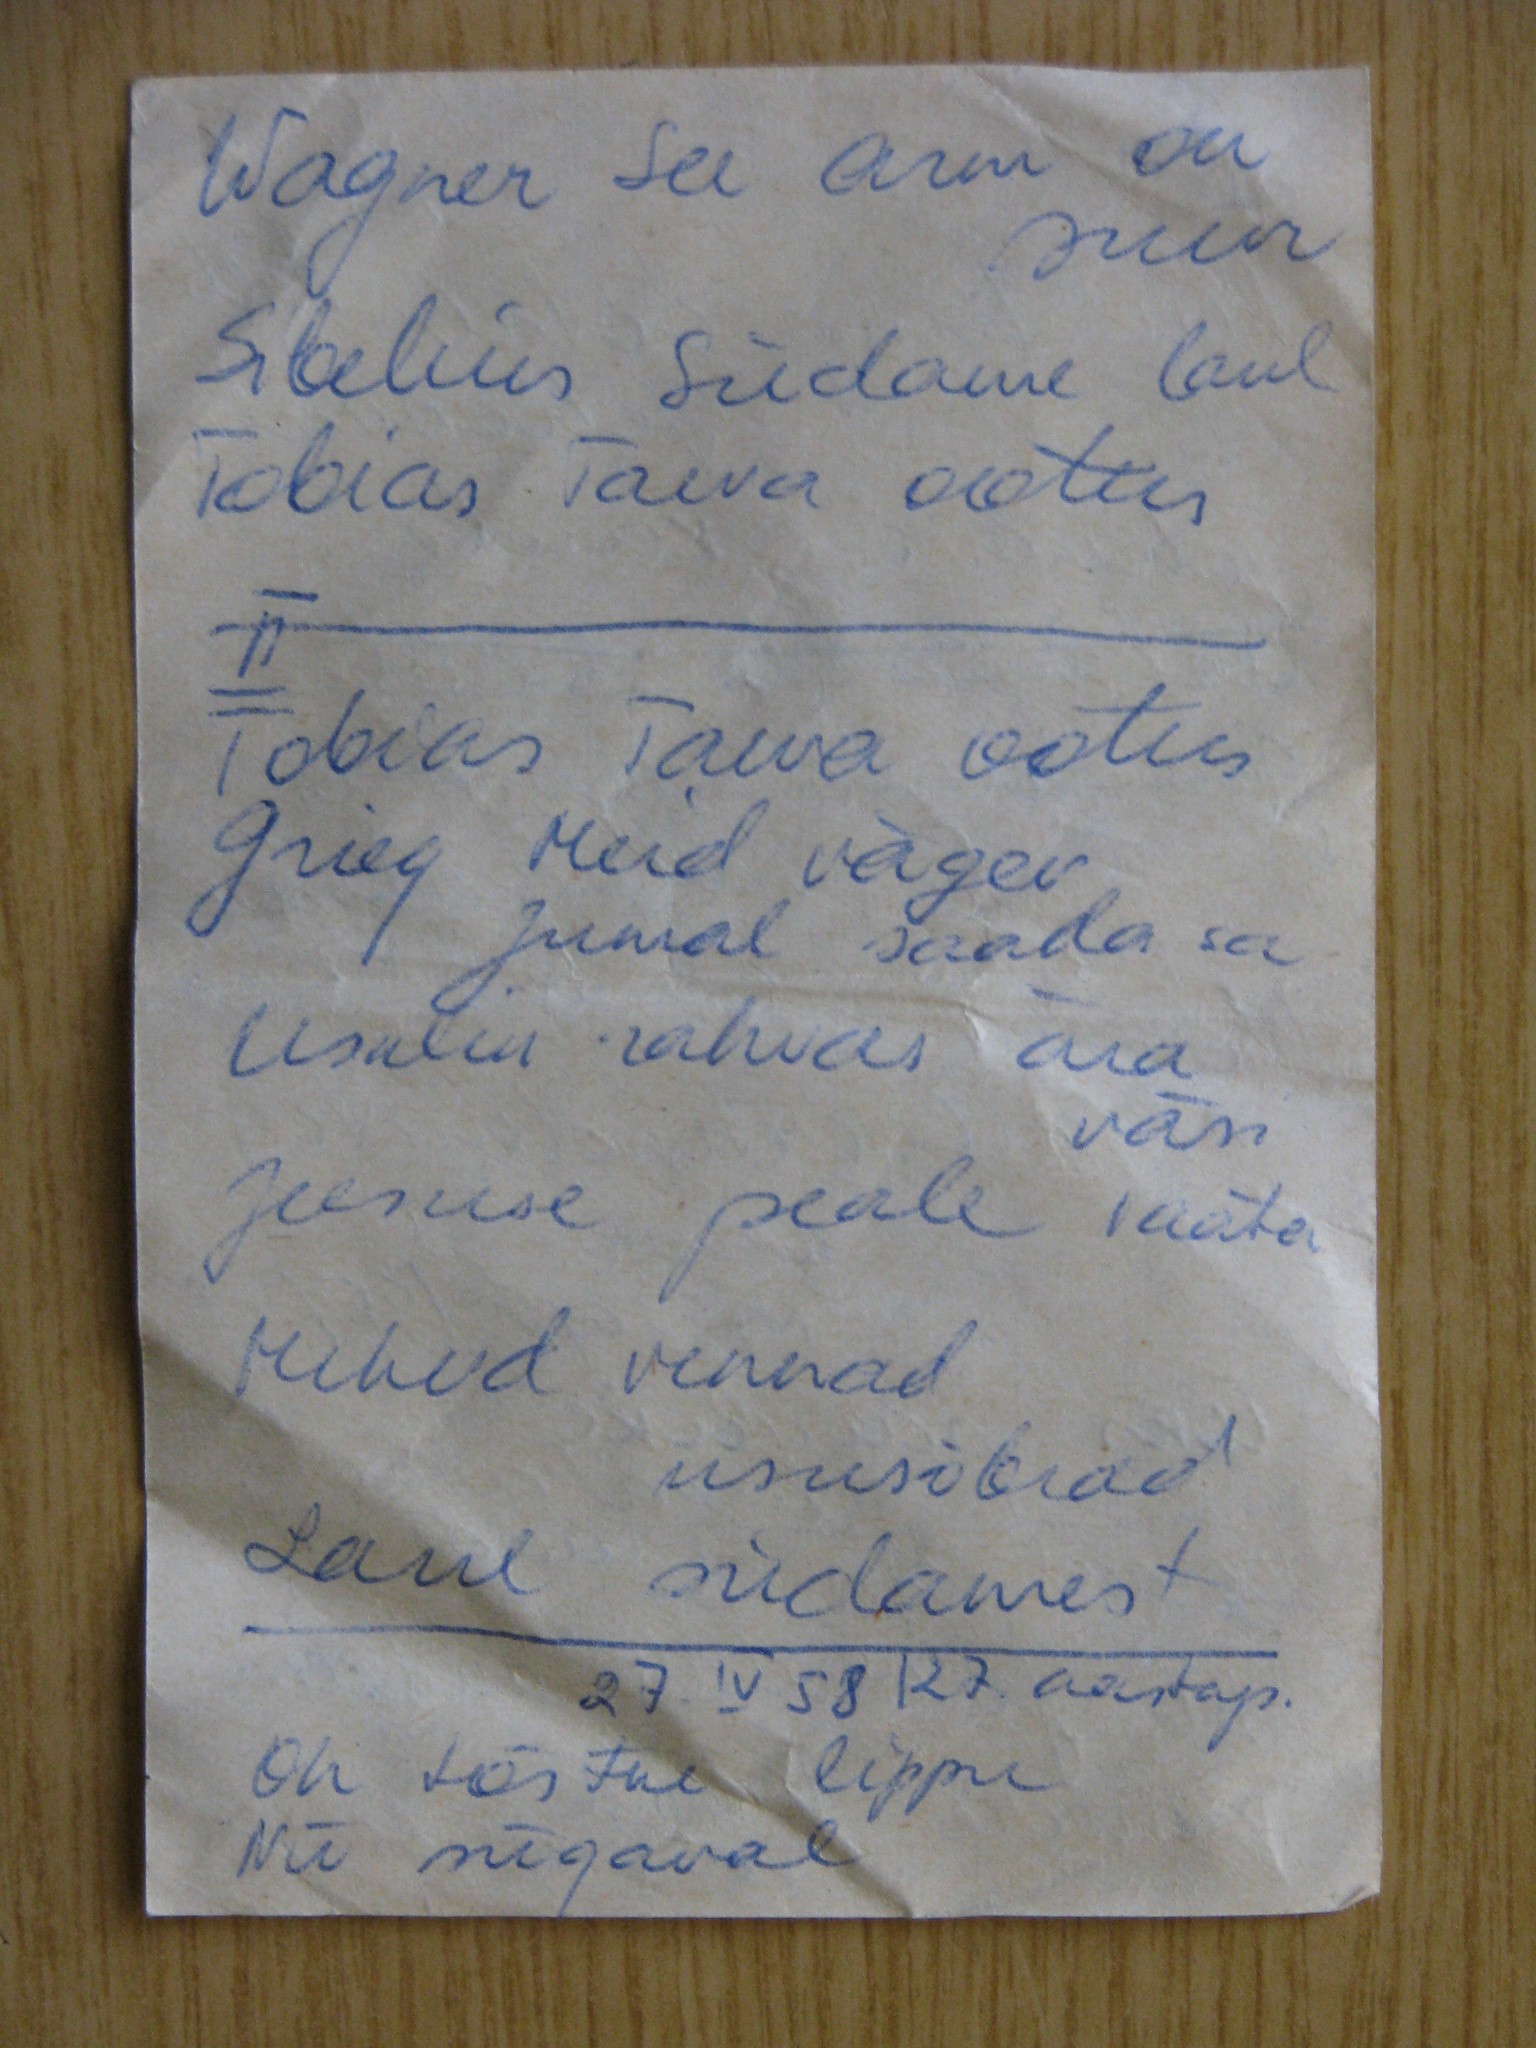 Wagner See arm on
suur
Sibelius Südame laul
Tobias Taeva ootus
II
Tobias Taeva ootus
Grieg Meid vägev
Jumal saada sa
Usulin rahvas ära
väsi
Jeesuse peale vaata
Mehed vennad
ususõbrad
Laul südamest
27. IV 58 127. aastap.
Oh tõstke lippu
Nii sügaval